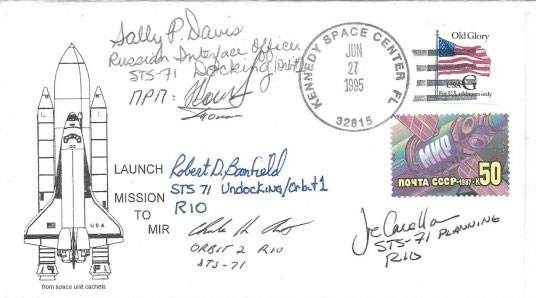 Sally P. Davis
Russian Interface Officer
STS-71 Docking/Orbit 1
ПРП:
KENNEDY SPACE CENTER FL
JUN
27
1995
32815
Old Glory
USA G
For U.S. addresses only
МИР
ПОЧТА СССР·1987·К50
LAUNCH
MISSION
TO
MIR
Robert D. Banfield
STS 71 Undocking/Orbit 1
RIO
ORBIT 2 RIO
STS-71
Joe
STS-71 PLANNING
RIO
USA
from space unit cachets